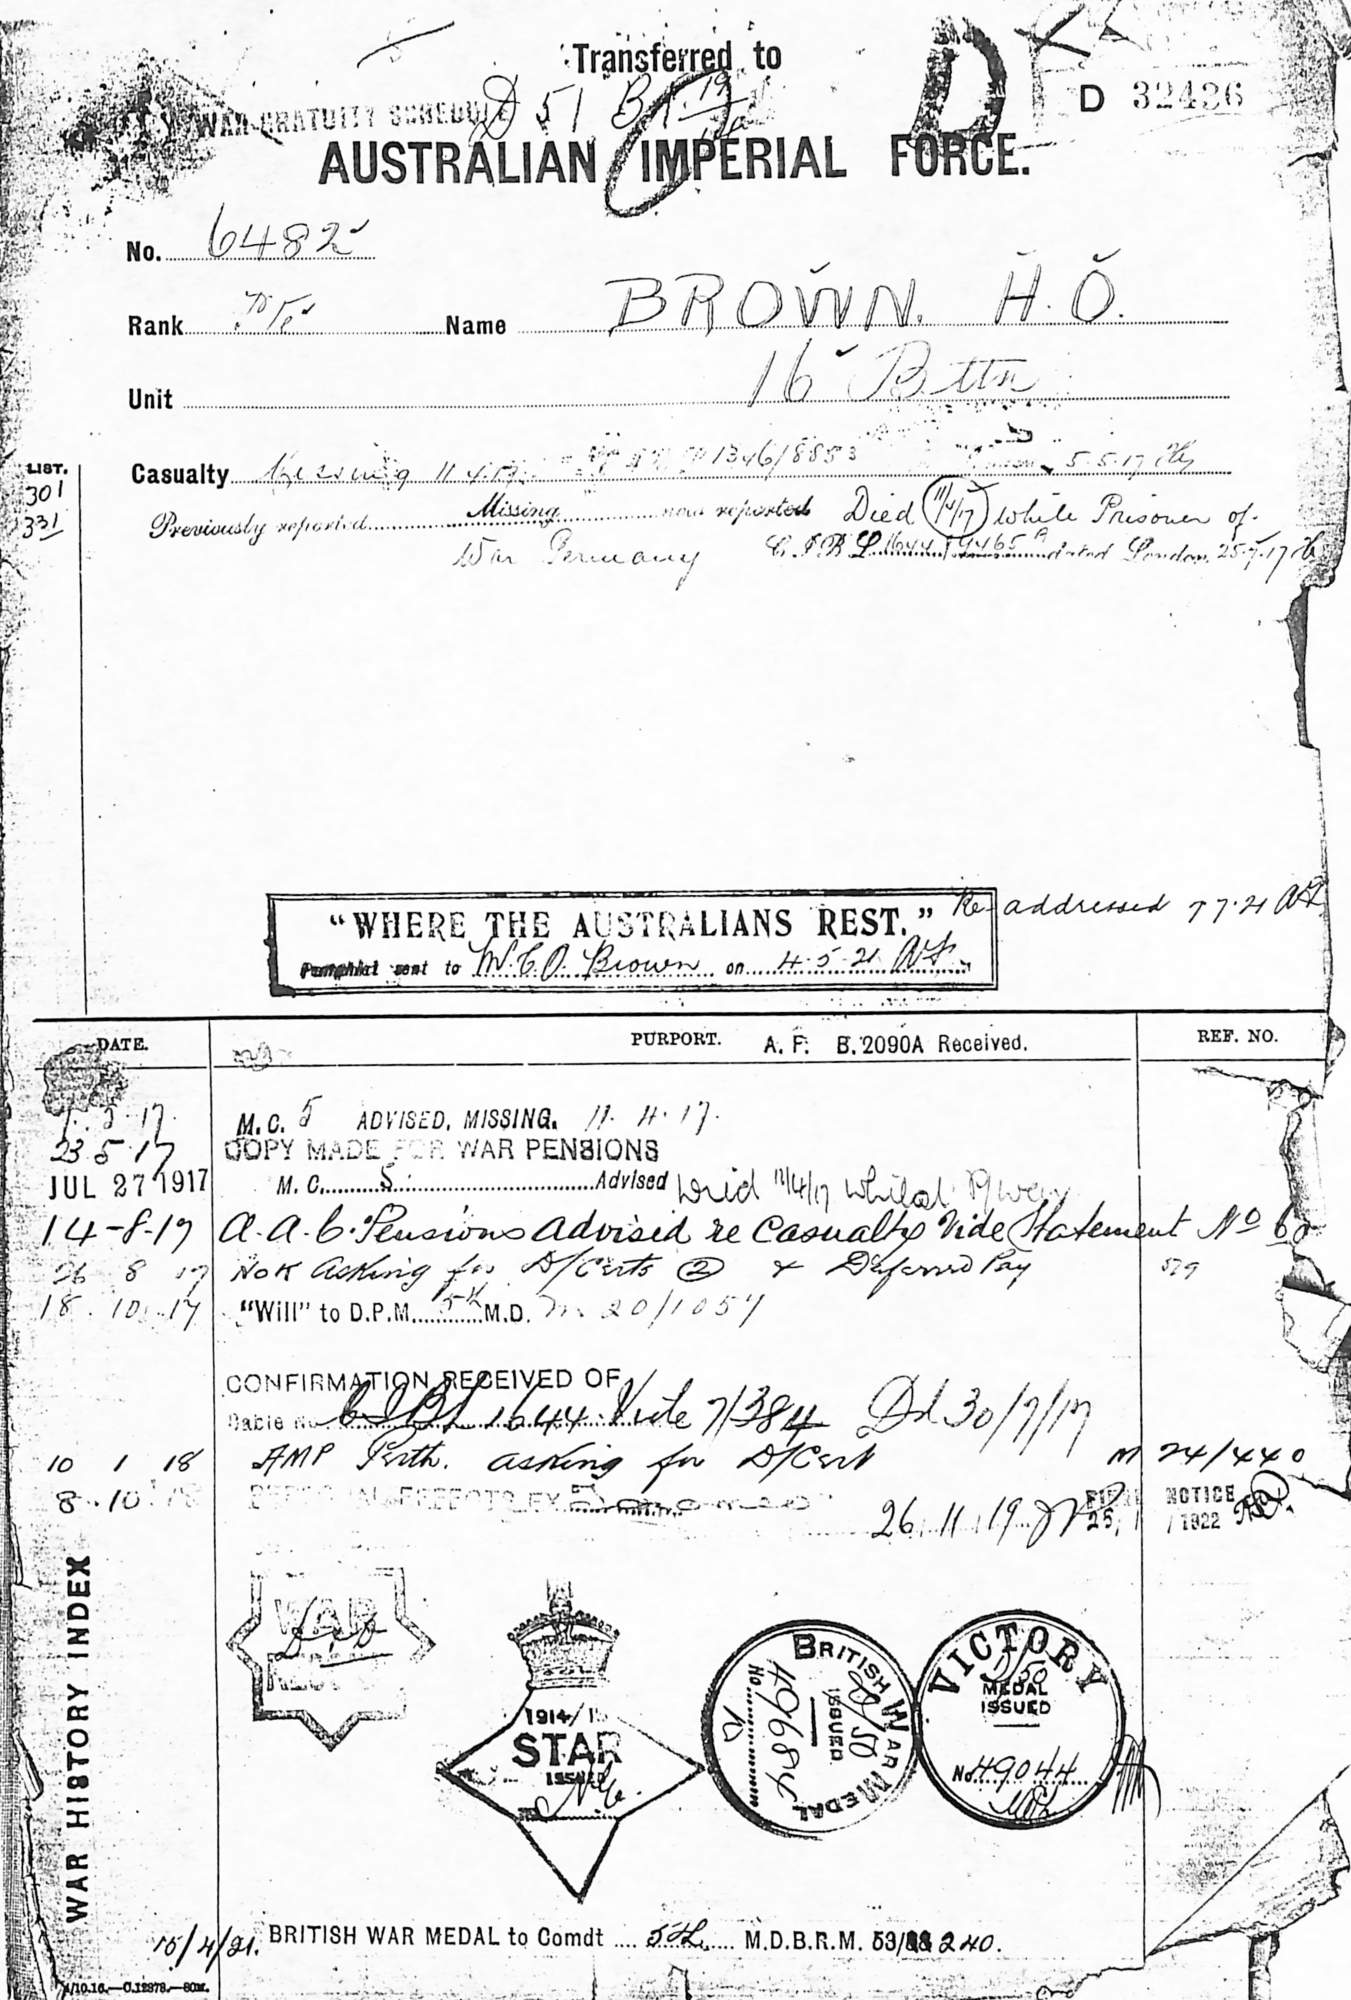 Transferred to
WAR GRATUITY SCHEDULE D 51 Bn
D D 32426
AUSTRALIAN IMPERIAL FORCE.
No. 6482
Rank Pte Name BROWN. H.O.
Unit 16 Battn
LIST.
301
331
Casualty Missing 11.4.17. 1346/8853 5.5.17
Previously reported Missing now reported Died 11/4/17 while Prisoner of
War Germany C.I.B.L. 1644 / 9465 A dated London, 25.7.17
"WHERE THE AUSTRALIANS REST."
Re-addressed 7 7.21
Pamphlet sent to W.C.O. Brown on 4.5.21
DATE. PURPORT. A. F. B.2090A Received. REF. NO.
5 17 M.C. 5 ADVISED, MISSING. 11.4.17.
23 5 17 COPY MADE FOR WAR PENSIONS
JUL 27 1917 M.C. 5 Advised Died 11/4/17 whilst P/War
14-8-17 A.A.C. Pensions advised re Casualty Vide Statement No 60
26 8 17 NoK Asking for D/Certs 2 & Deferred Pay 579
18.10.17 "Will" to D.P.M. 5th M.D. M 20/1057
CONFIRMATION RECEIVED OF
Cable No. CIBL 1644 Vide 7/384 Dd 30/7/17
10 1 18 AMP Perth. asking for D/Cert M 24/440
8.10.18 PERSONAL EFFECTS EX
26.11.19 NOTICE
25 / 1922
WAR HISTORY INDEX
WAR
1914/15
STAR
ISSUED
BRITISH WAR MEDAL
ISSUED
D/50
No. 49684
VICTORY
D/50
MEDAL
ISSUED
No. 49044
15/4/21. BRITISH WAR MEDAL to Comdt 5th M.D.B.R.M. 53/ 240.
/10.16.—C.12878.—80M.